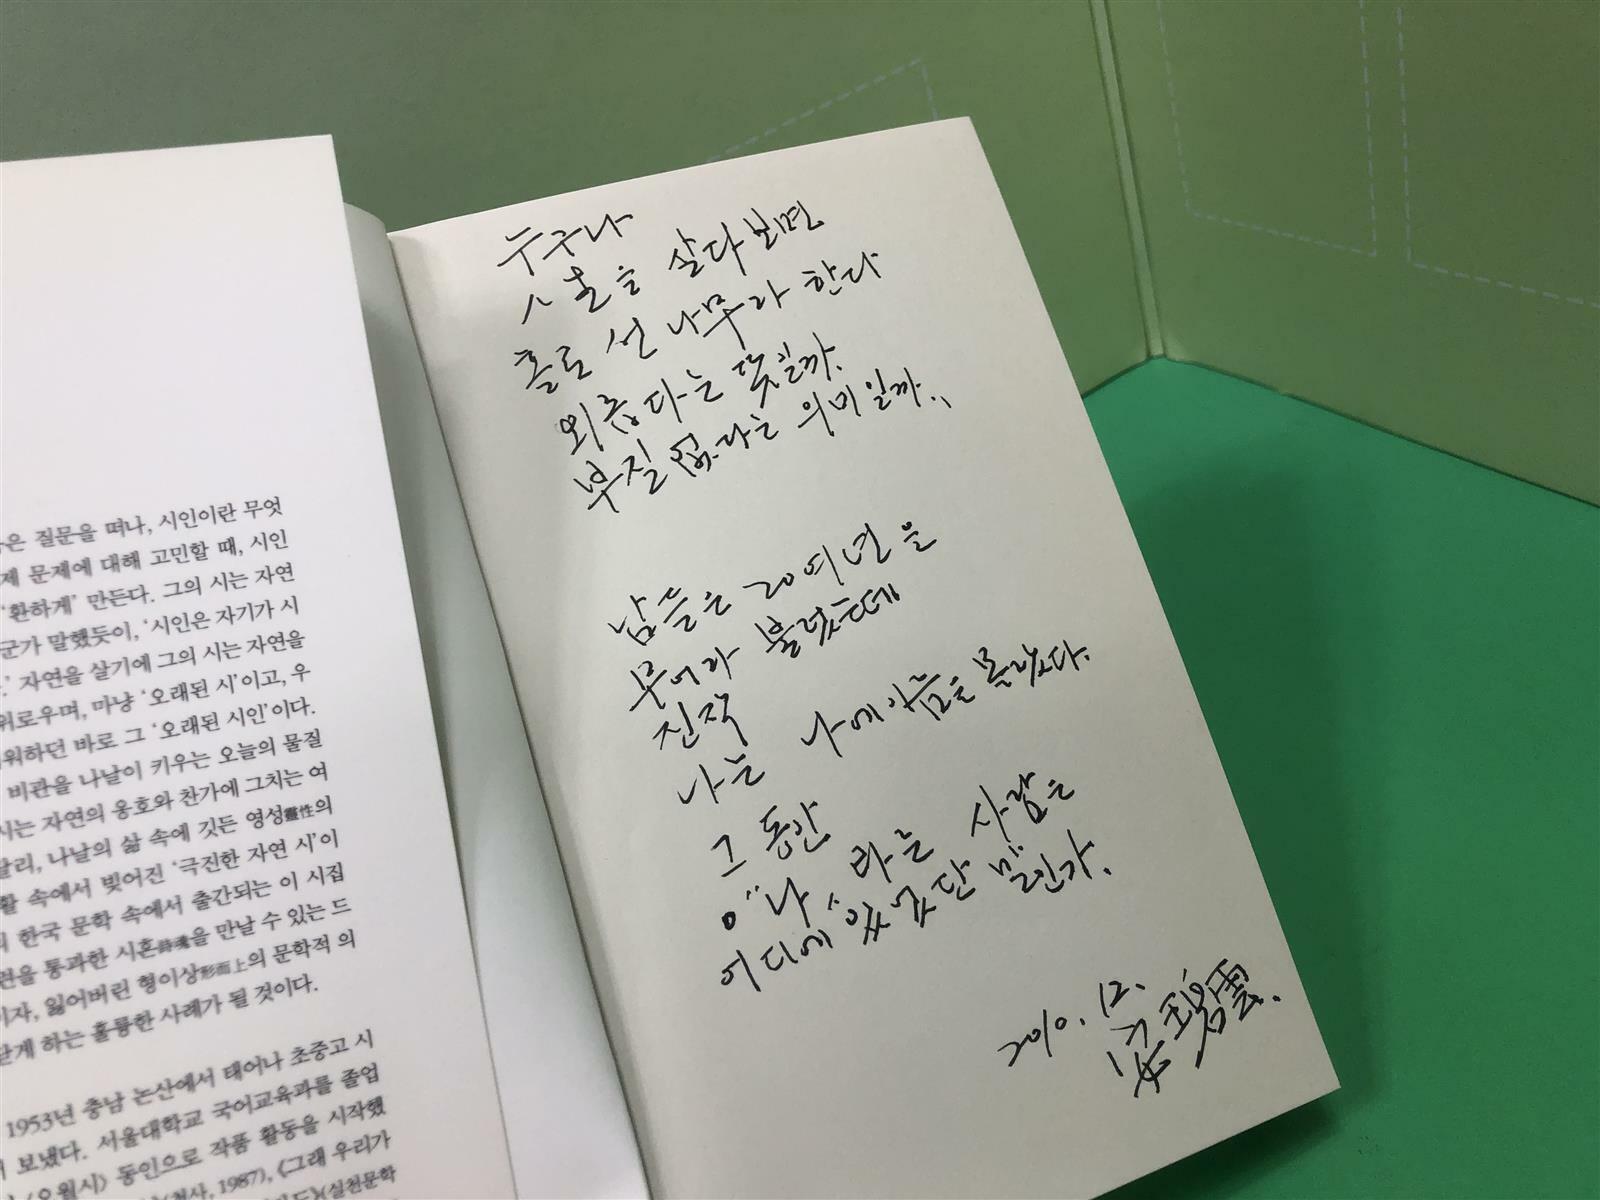 은 질문을 떠나, 시인이란 무엇
제 문제에 대해 고민할 때, 시인
‘환하게’ 만든다. 그의 시는 자연
군가 말했듯이, ‘시인은 자기가 시
.’ 자연을 살기에 그의 시는 자연을
위로우며, 마냥 ‘오래된 시’이고, 우
워하던 바로 그 ‘오래된 시인’이다.
비관을 나날이 키우는 오늘의 물질
시는 자연의 옹호와 찬가에 그치는 여
달리, 나날의 삶 속에 깃든 영성靈性의
활 속에서 빚어진 ‘극진한 자연 시’이
의 한국 문학 속에서 출간되는 이 시집
련을 통과한 시혼詩魂을 만날 수 있는 드
이자, 잃어버린 형이상形而上의 문학적 의
닫게 하는 훌륭한 사례가 될 것이다.
1953년 충남 논산에서 태어나 초중고 시
보냈다. 서울대학교 국어교육과를 졸업
〈오월시〉 동인으로 작품 활동을 시작했
1987), 《그래 우리가
(실천문학
누구나
人生을 살다보면
홀로 선 나무라 한다
외롭다는 뜻일까.
부질없다는 의미일까..
남들은 20여년을
무어라 불렀는데
진작
나는 나에 아픔을 몰랐다.
그 동안
"나" 라는 사람은
어디에 있었단 말인가.
2010. 12.
碧雲.